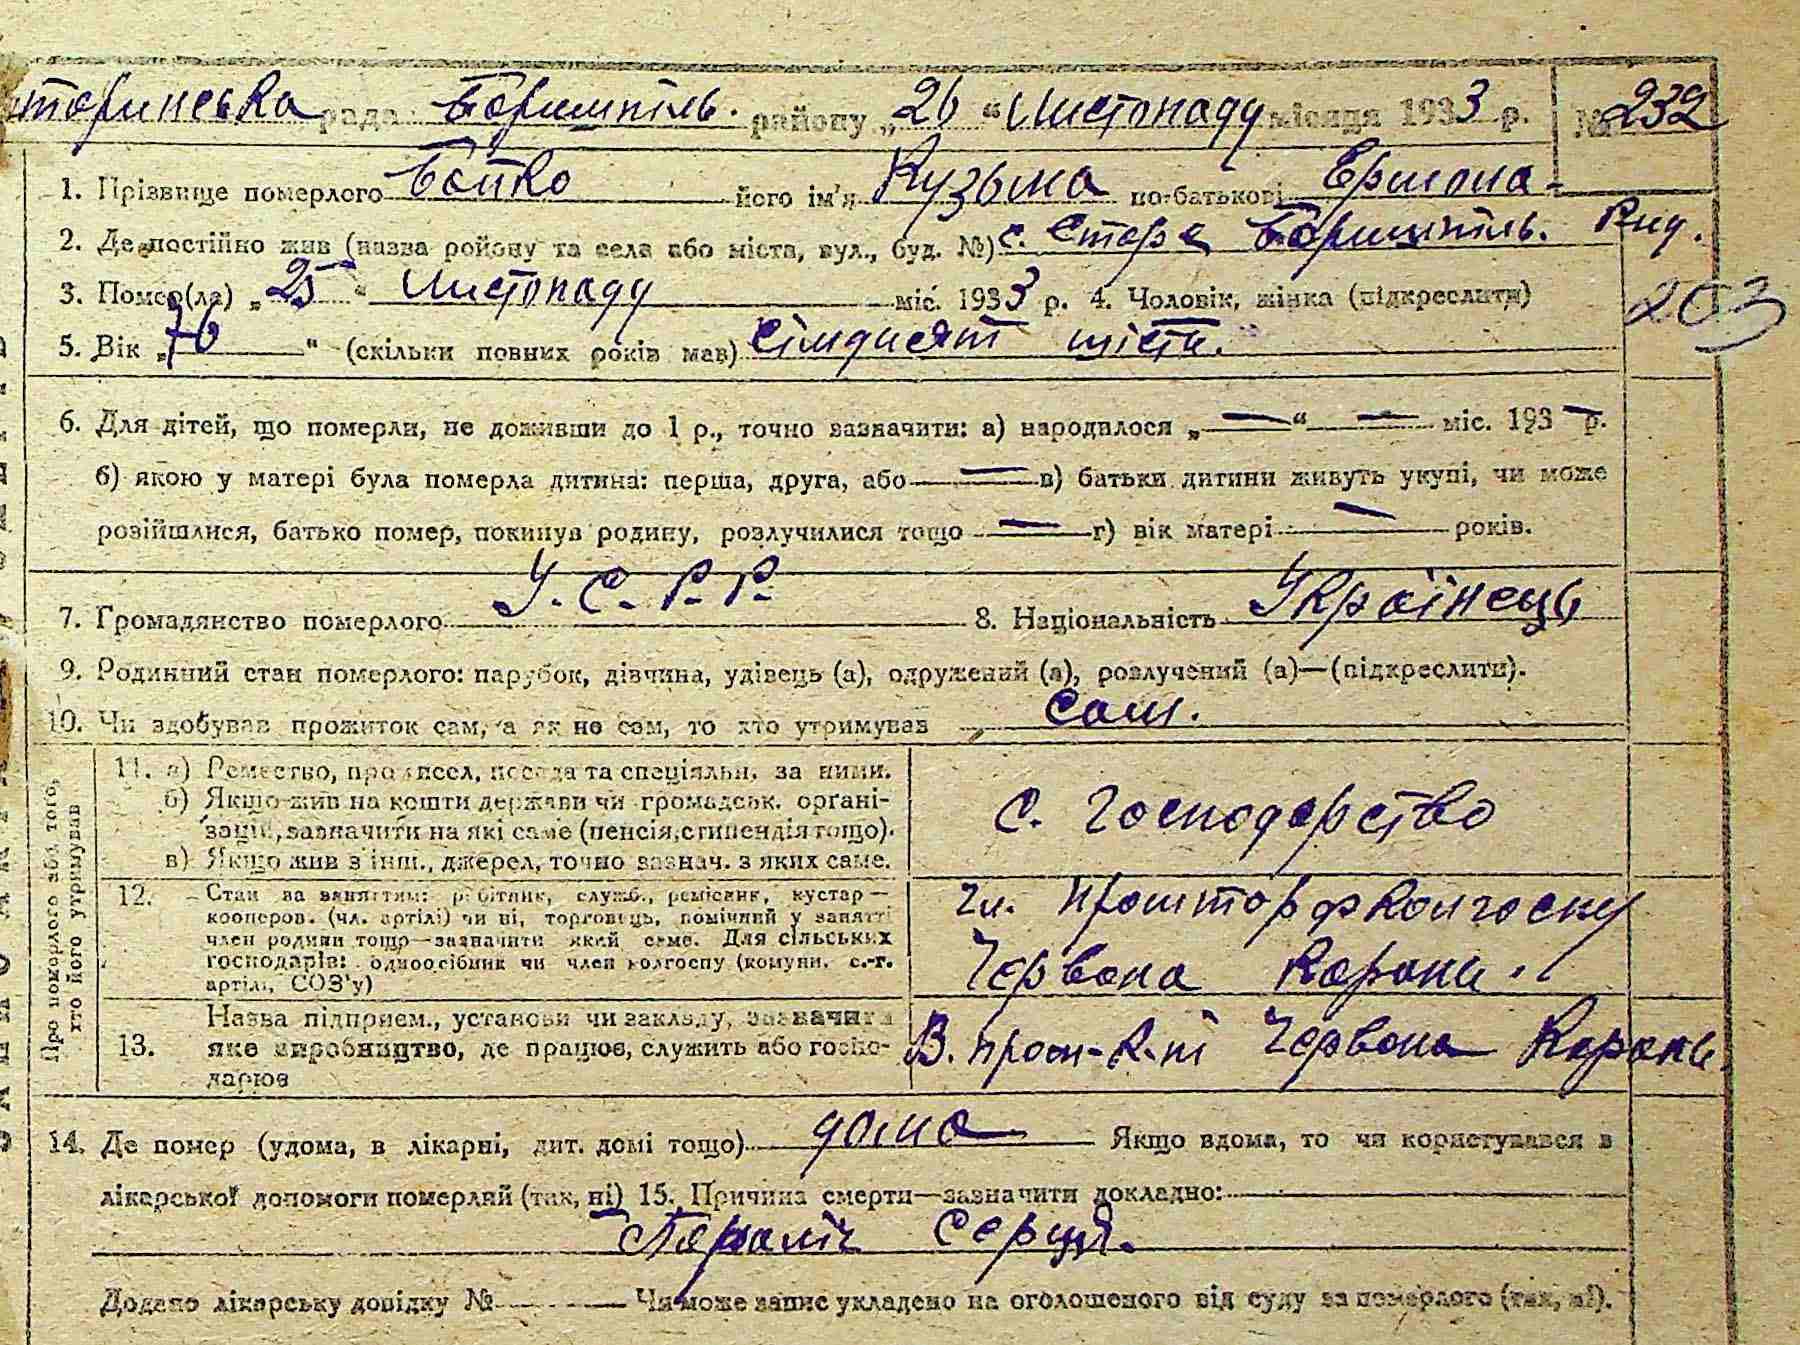 рада Боришпіль. району „26“ Листопаду місяця 1933 р. № 232
1. Прізвище померлого Бойко його ім'я Кузьма по-батькові
2. Де постійно жив (назва району та села або міста, вул., буд. №) с. Стара Боришпіль.
3. Помер(ла) „25“ Листопаду міс. 1933 р. 4. Чоловік, жінка (підкреслити) 203
5. Вік „76“ (скільки повних років мав) сімдисят шість.
6. Для дітей, що померли, не доживши до 1 р., точно зазначити: а) народилося „—“ — міс. 193— р.
б) якою у матері була померла дитина: перша, друга, або — в) батьки дитини живуть укупі, чи може
розійшлися, батько помер, покинув родину, розлучилися тощо — г) вік матері — років.
7. Громадянство померлого У.С.Р.Р. 8. Національність Українець
9. Родинний стан померлого: парубок, дівчина, удівець (а), одружений (а), розлучений (а)—(підкреслити).
10. Чи здобував прожиток сам, а як не сам, то хто утримував сам.
Про померлого або того,
хто його утримував
11. а) Ремество, промисел, посада та спеціяльн. за ними.
б) Якщо жив на кошти держави чи громадськ. органі-
зації, зазначити на які саме (пенсія, стипендія тощо).
в) Якщо жив з інш., джерел, точно зазнач. з яких саме.
с. господарство
12. Стан за заняттям: робітник, служб., ремісник, кустар—
кооперов. (чл. артілі) чи ні, торговець, помічний у занятті
член родини тощо—зазначити який саме. Для сільських
господарів: одноосібник чи член колгоспу (комуни, с.-г.
артілі, СОЗ'у)
колгоспу
Червона
13. Назва підприєм., установи чи закладу, зазначити
яке виробництво, де працює, служить або госпо-
дарює
Червона
14. Де помер (удома, в лікарні, дит. домі тощо) дома Якщо вдома, то чи користувався в
лікарської допомоги померлий (так, ні) 15. Причина смерти—зазначити докладно:
Параліч серця.
Додано лікарську довідку № Чи може запис укладено на оголошеного від суду за померлого (так, ні).